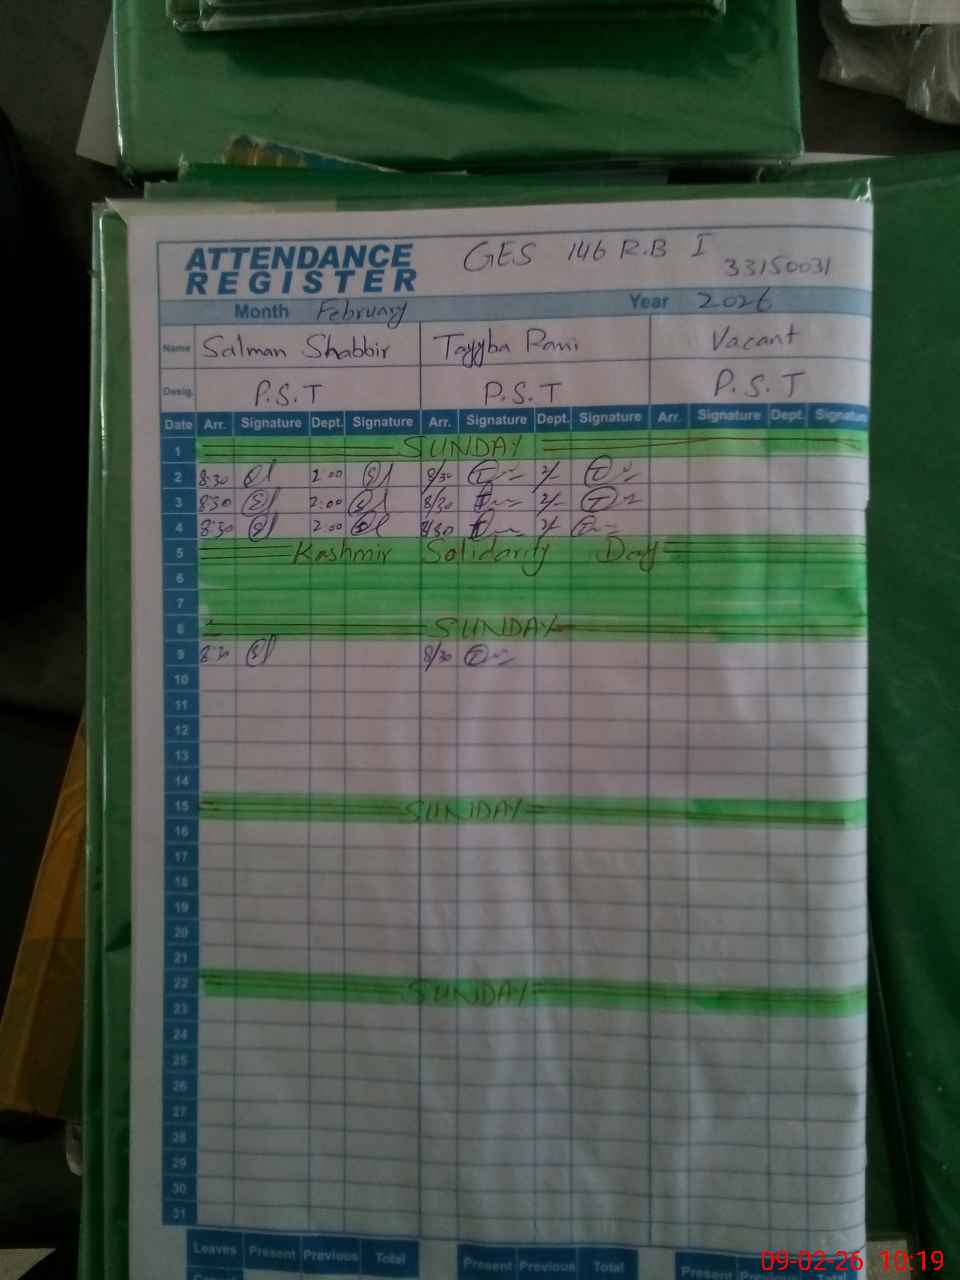 ATTENDANCE REGISTER GES 146 R.B I 33150031
Month February Year 2026
Name Salman Shabbir Tayyba Rani Vacant
Desig. P.S.T P.S.T P.S.T
Date Arr. Signature Dept. Signature Arr. Signature Dept. Signature Arr. Signature Dept. Signature
1 SUNDAY
2 8:30 2:00 8/30 2/-
3 8:30 2:00 8/30 2/-
4 8:30 2:00 8/30 2/-
5 Kashmir Solidarity Day
6
7
8 SUNDAY
9 8:30 8/30
10
11
12
13
14
15 SUNDAY
16
17
18
19
20
21
22 SUNDAY
23
24
25
26
27
28
29
30
31
Leaves Present Previous Total Present Previous Total Present
09-02-26 10:19